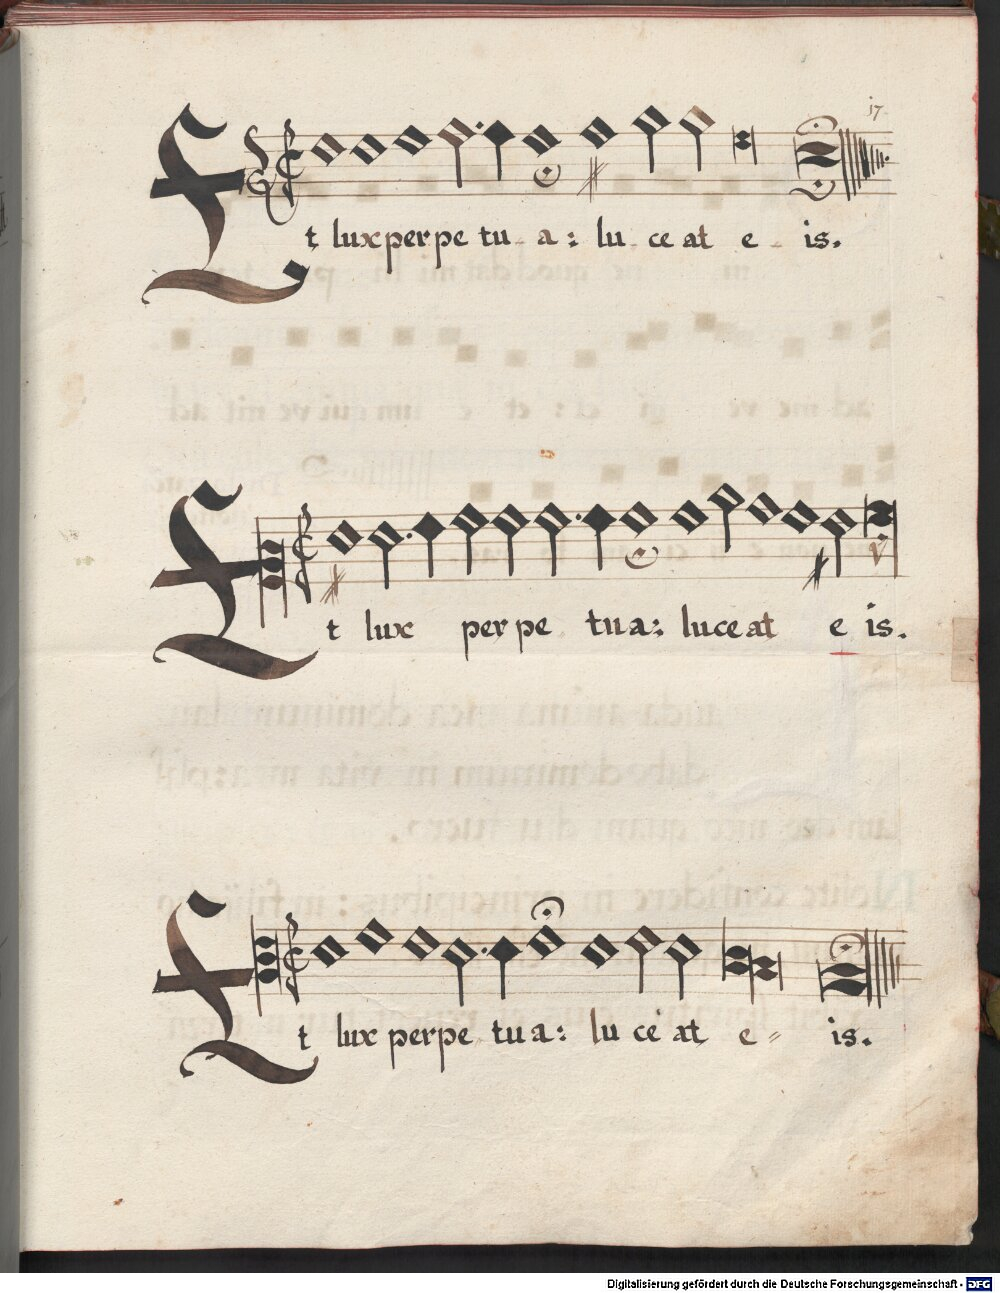 17.
Et lux perpe tu a: lu ce at e is.
Et lux per pe tu a: lu ce at e is.
Et lux perpe tu a: lu ce at e is.
Digitalisierung gefördert durch die Deutsche Forschungsgemeinschaft - DFG